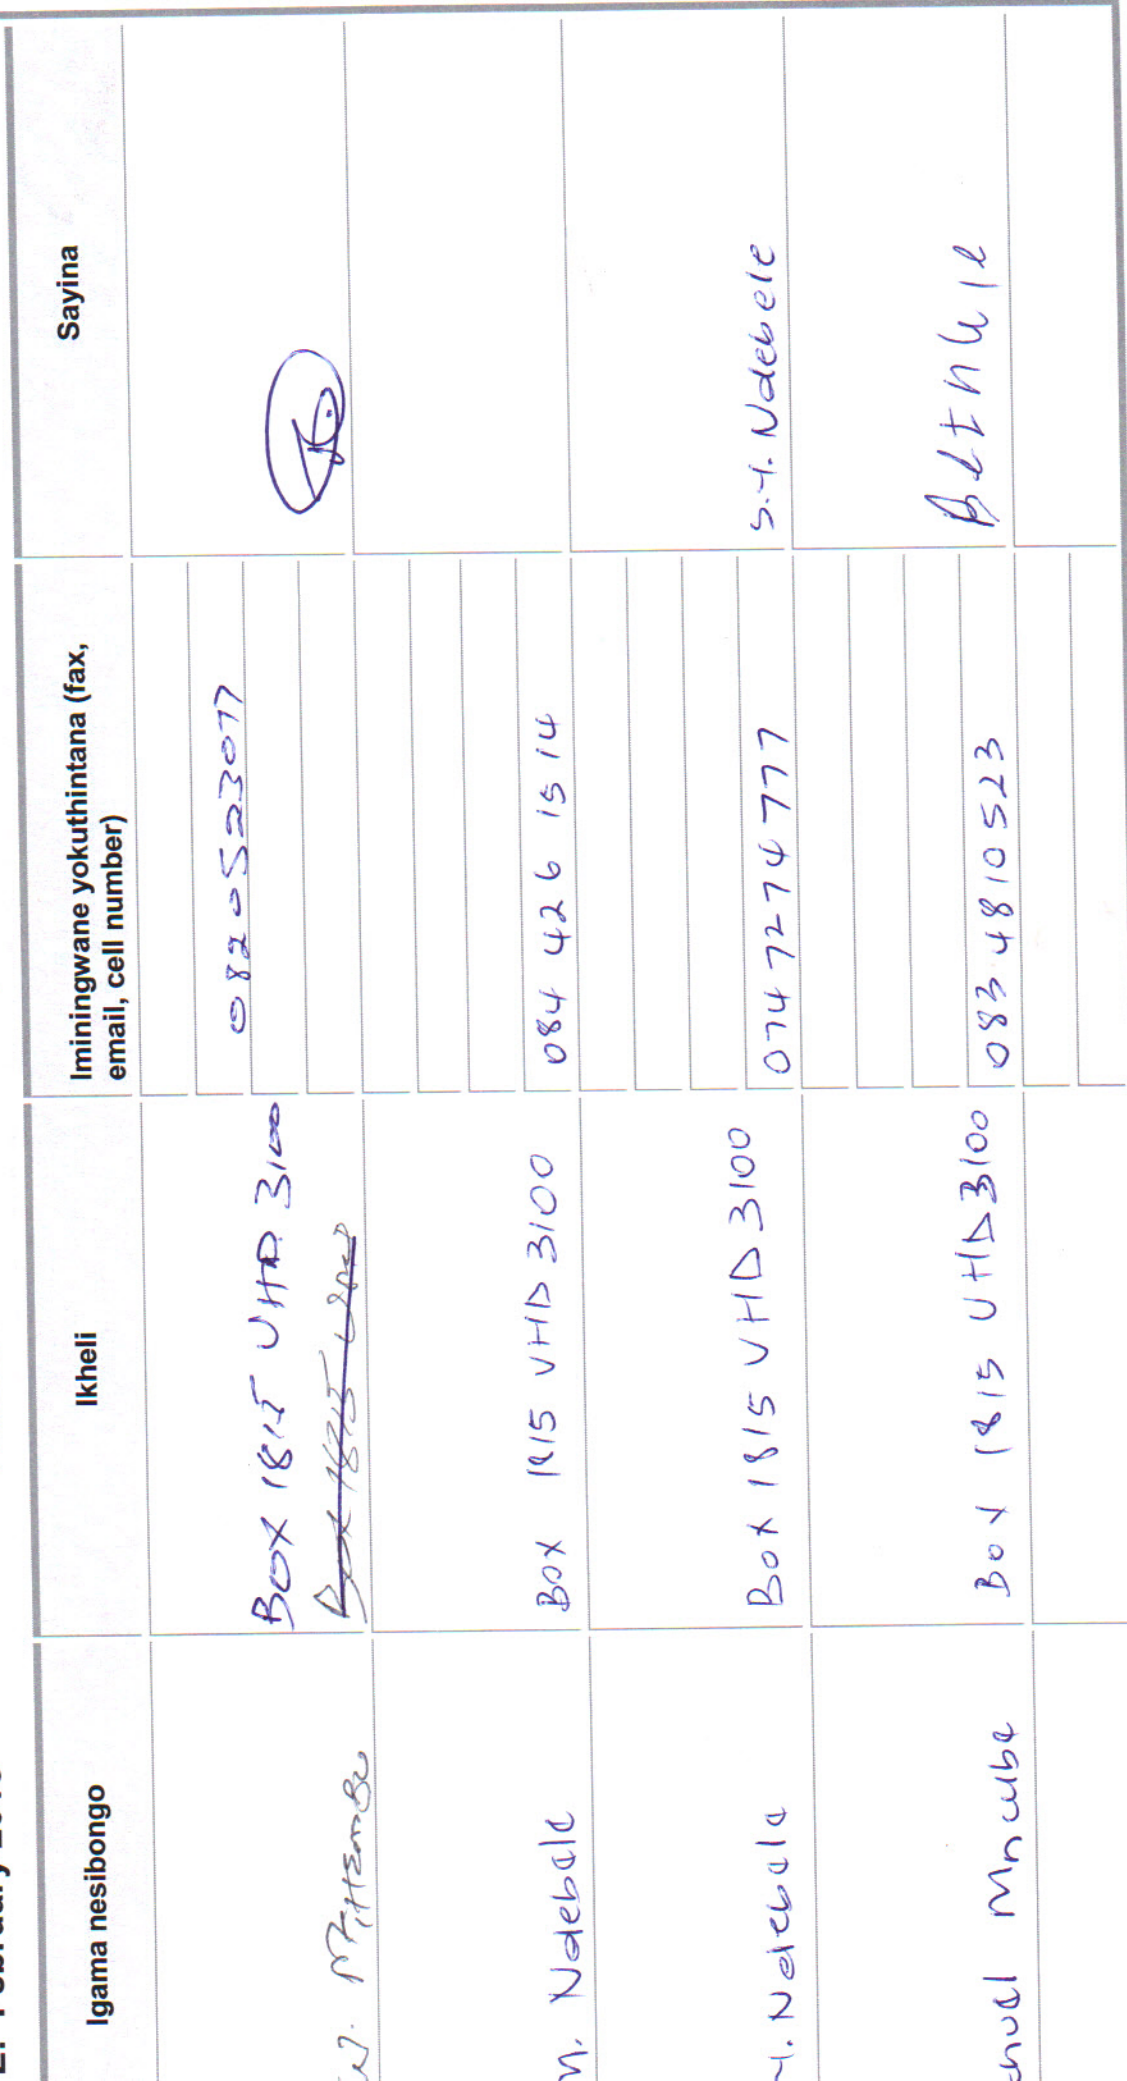 February 2
Igama nesibongo
Ikheli
Iminingwane yokuthintana (fax,
email, cell number)
Sayina
BOX 1815 VHD 3100
0820523077
Ndebele
Box 1815 VHD 3100
084 426 1514
Ndebele
Box 1815 VHD 3100
074 7274777
S.Y. Ndebele
Mncube
Box 1815 VHD 3100
083 4810523